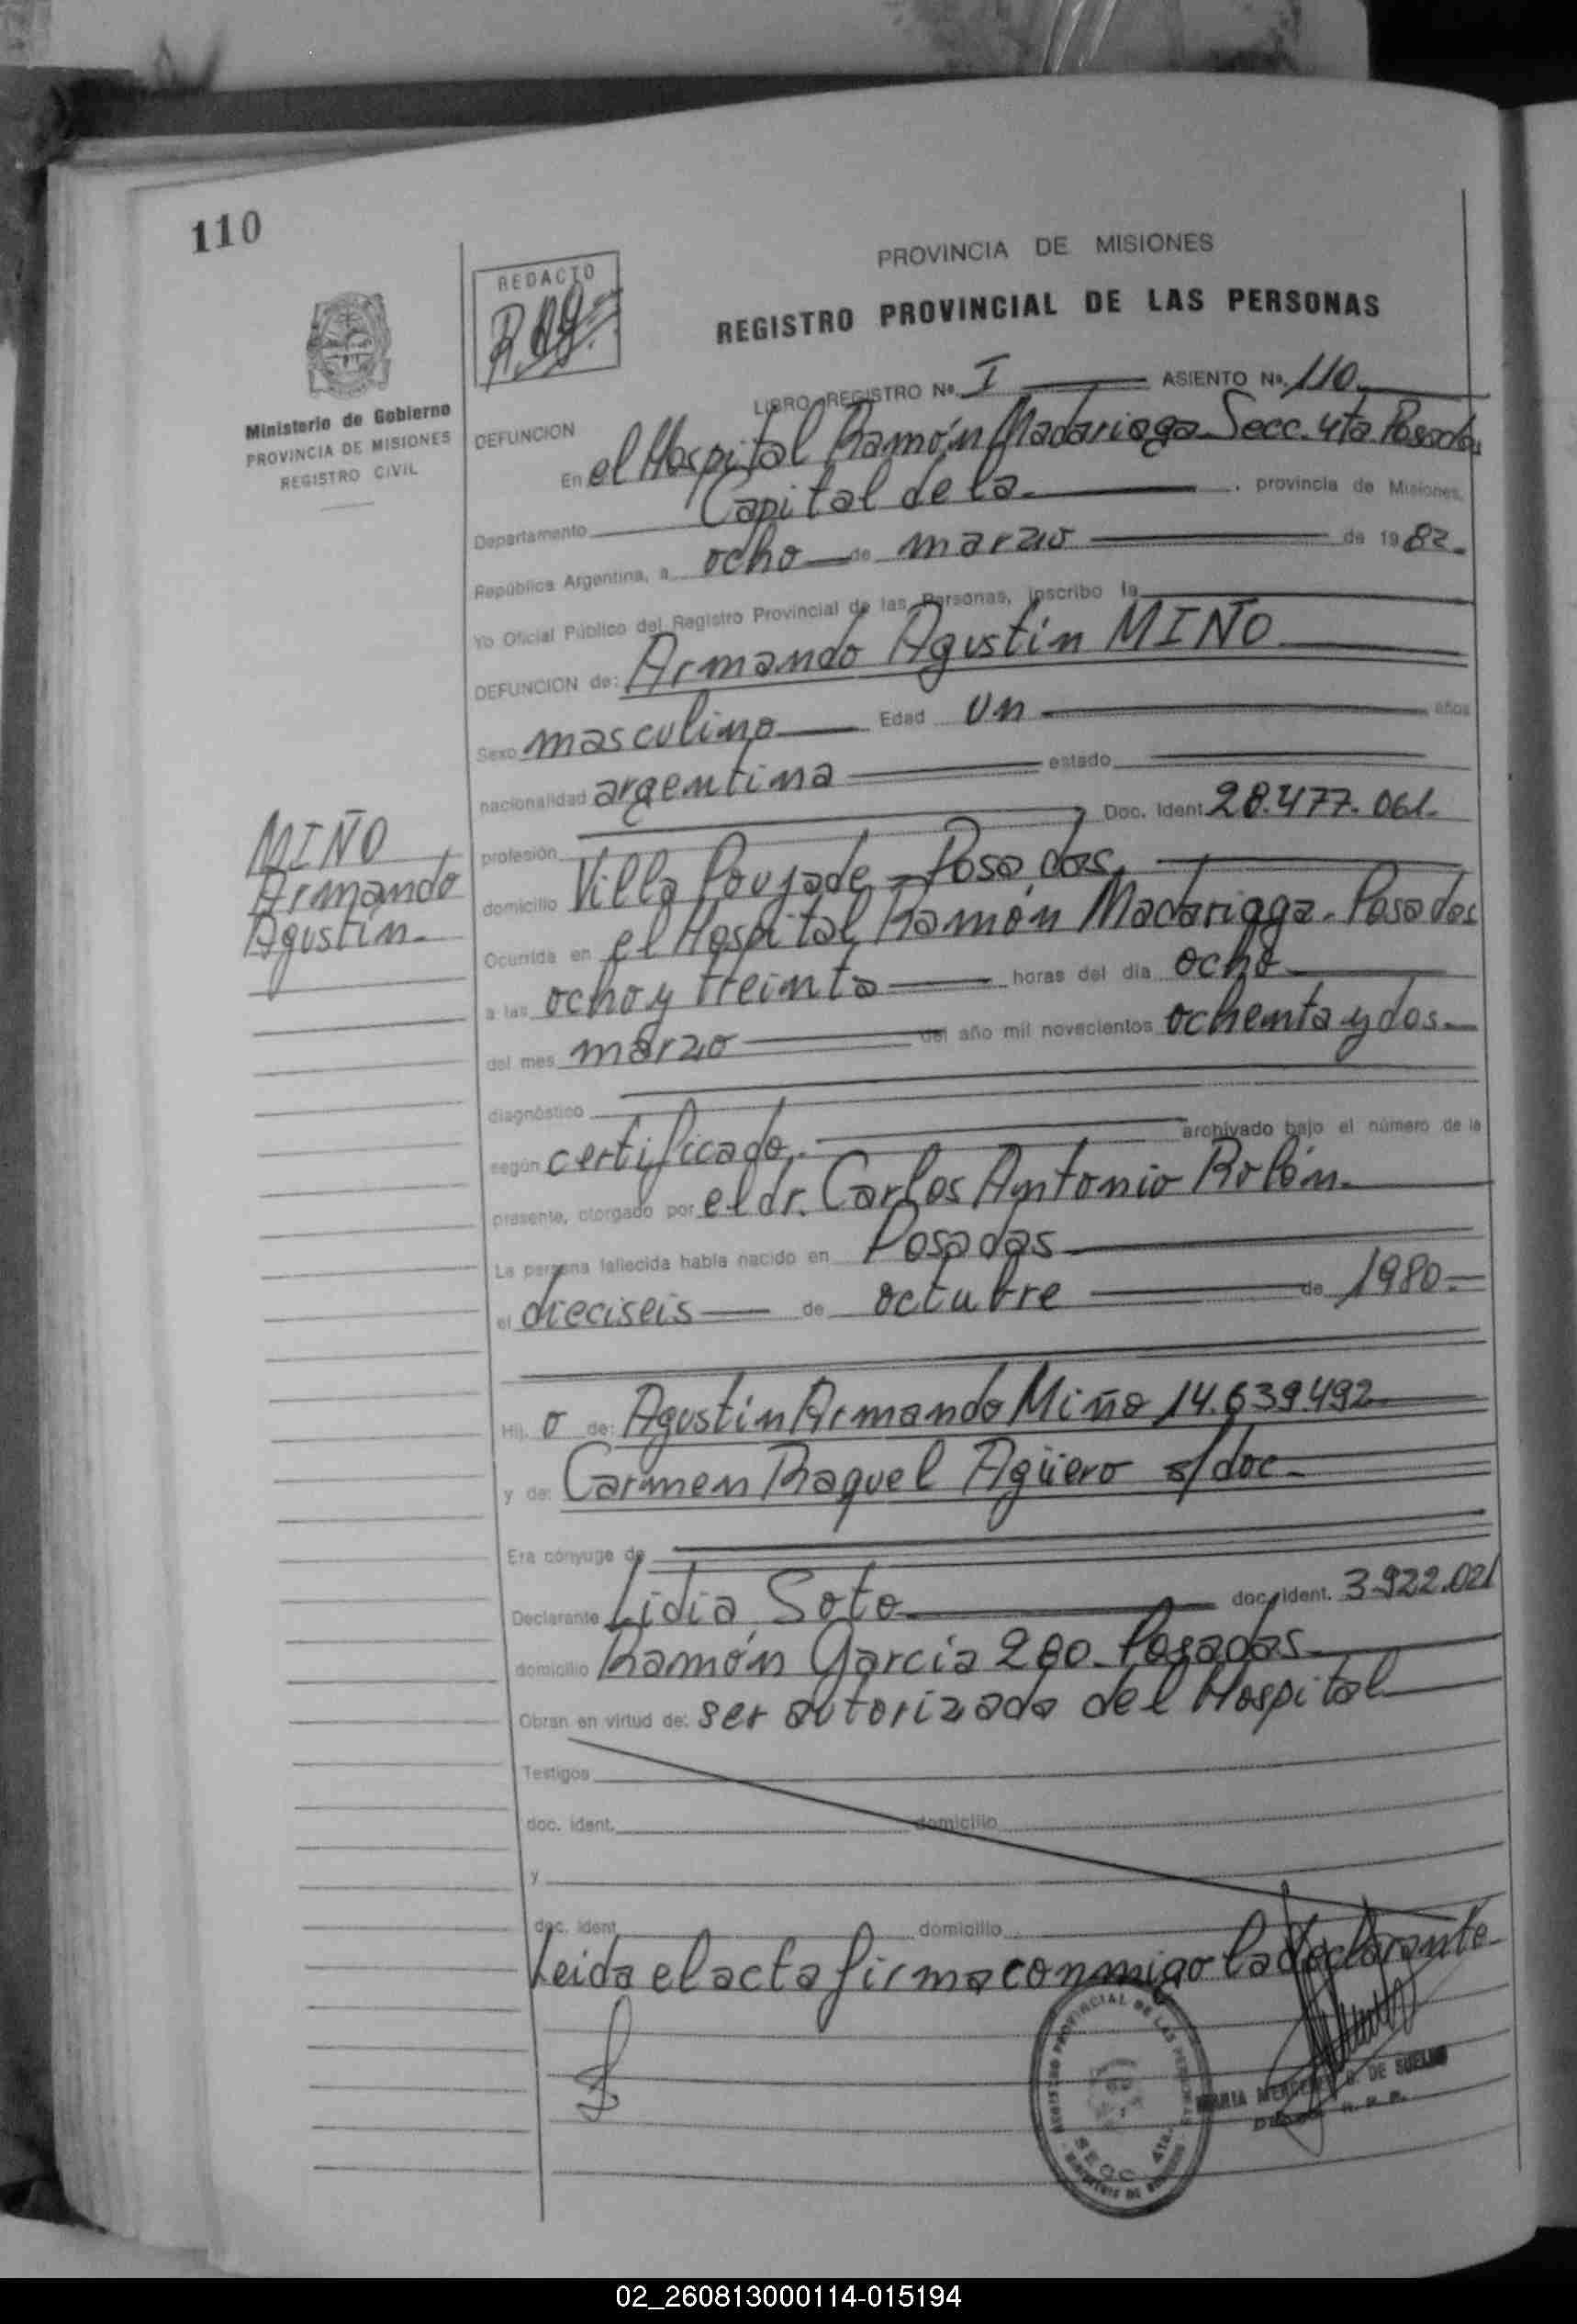 110
REDACTO
PROVINCIA DE MISIONES
REGISTRO PROVINCIAL DE LAS PERSONAS
Ministerio de Gobierno
PROVINCIA DE MISIONES
REGISTRO CIVIL
LIBRO REGISTRO Nº. I ASIENTO Nº. 110.
DEFUNCION
En el Hospital Ramón Madariaga Secc. 4ta Posadas
Departamento Capital de la. provincia de Misiones,
República Argentina, a ocho de marzo de 1982.
Yo Oficial Público del Registro Provincial de las Personas, inscribo la
DEFUNCION de: Armando Agustín MIÑO
Sexo masculino Edad un años
nacionalidad argentina estado
MIÑO
Armando
Agustín.
profesión Doc. Ident. 28.477.061.
domicilio Villa Poujade - Posadas.
Ocurrida en el Hospital Ramón Madariaga. Posadas
a las ocho y treinta horas del día ocho
del mes marzo del año mil novecientos ochenta y dos.
diagnóstico
según certificado. archivado bajo el número de la
presente, otorgado por el dr. Carlos Antonio Rolón.
La persona fallecida había nacido en Posadas
el dieciseis de octubre de 1980.
Hij o de: Agustín Armando Miño 14.639.492
y de: Carmen Raquel Agüero s/doc.
Era cónyuge de
Declarante Lidia Soto doc. ident. 3.922.021
domicilio Ramón García 280. Posadas
Obran en virtud de: ser autorizada del Hospital
Testigos
doc. ident. domicilio
y
doc. ident. domicilio
Leida el acta firma conmigo la declarante
REGISTRO PROVINCIAL DE LAS PERSONAS
SECC. 4ta.
MARIA DE
02_260813000114-015194